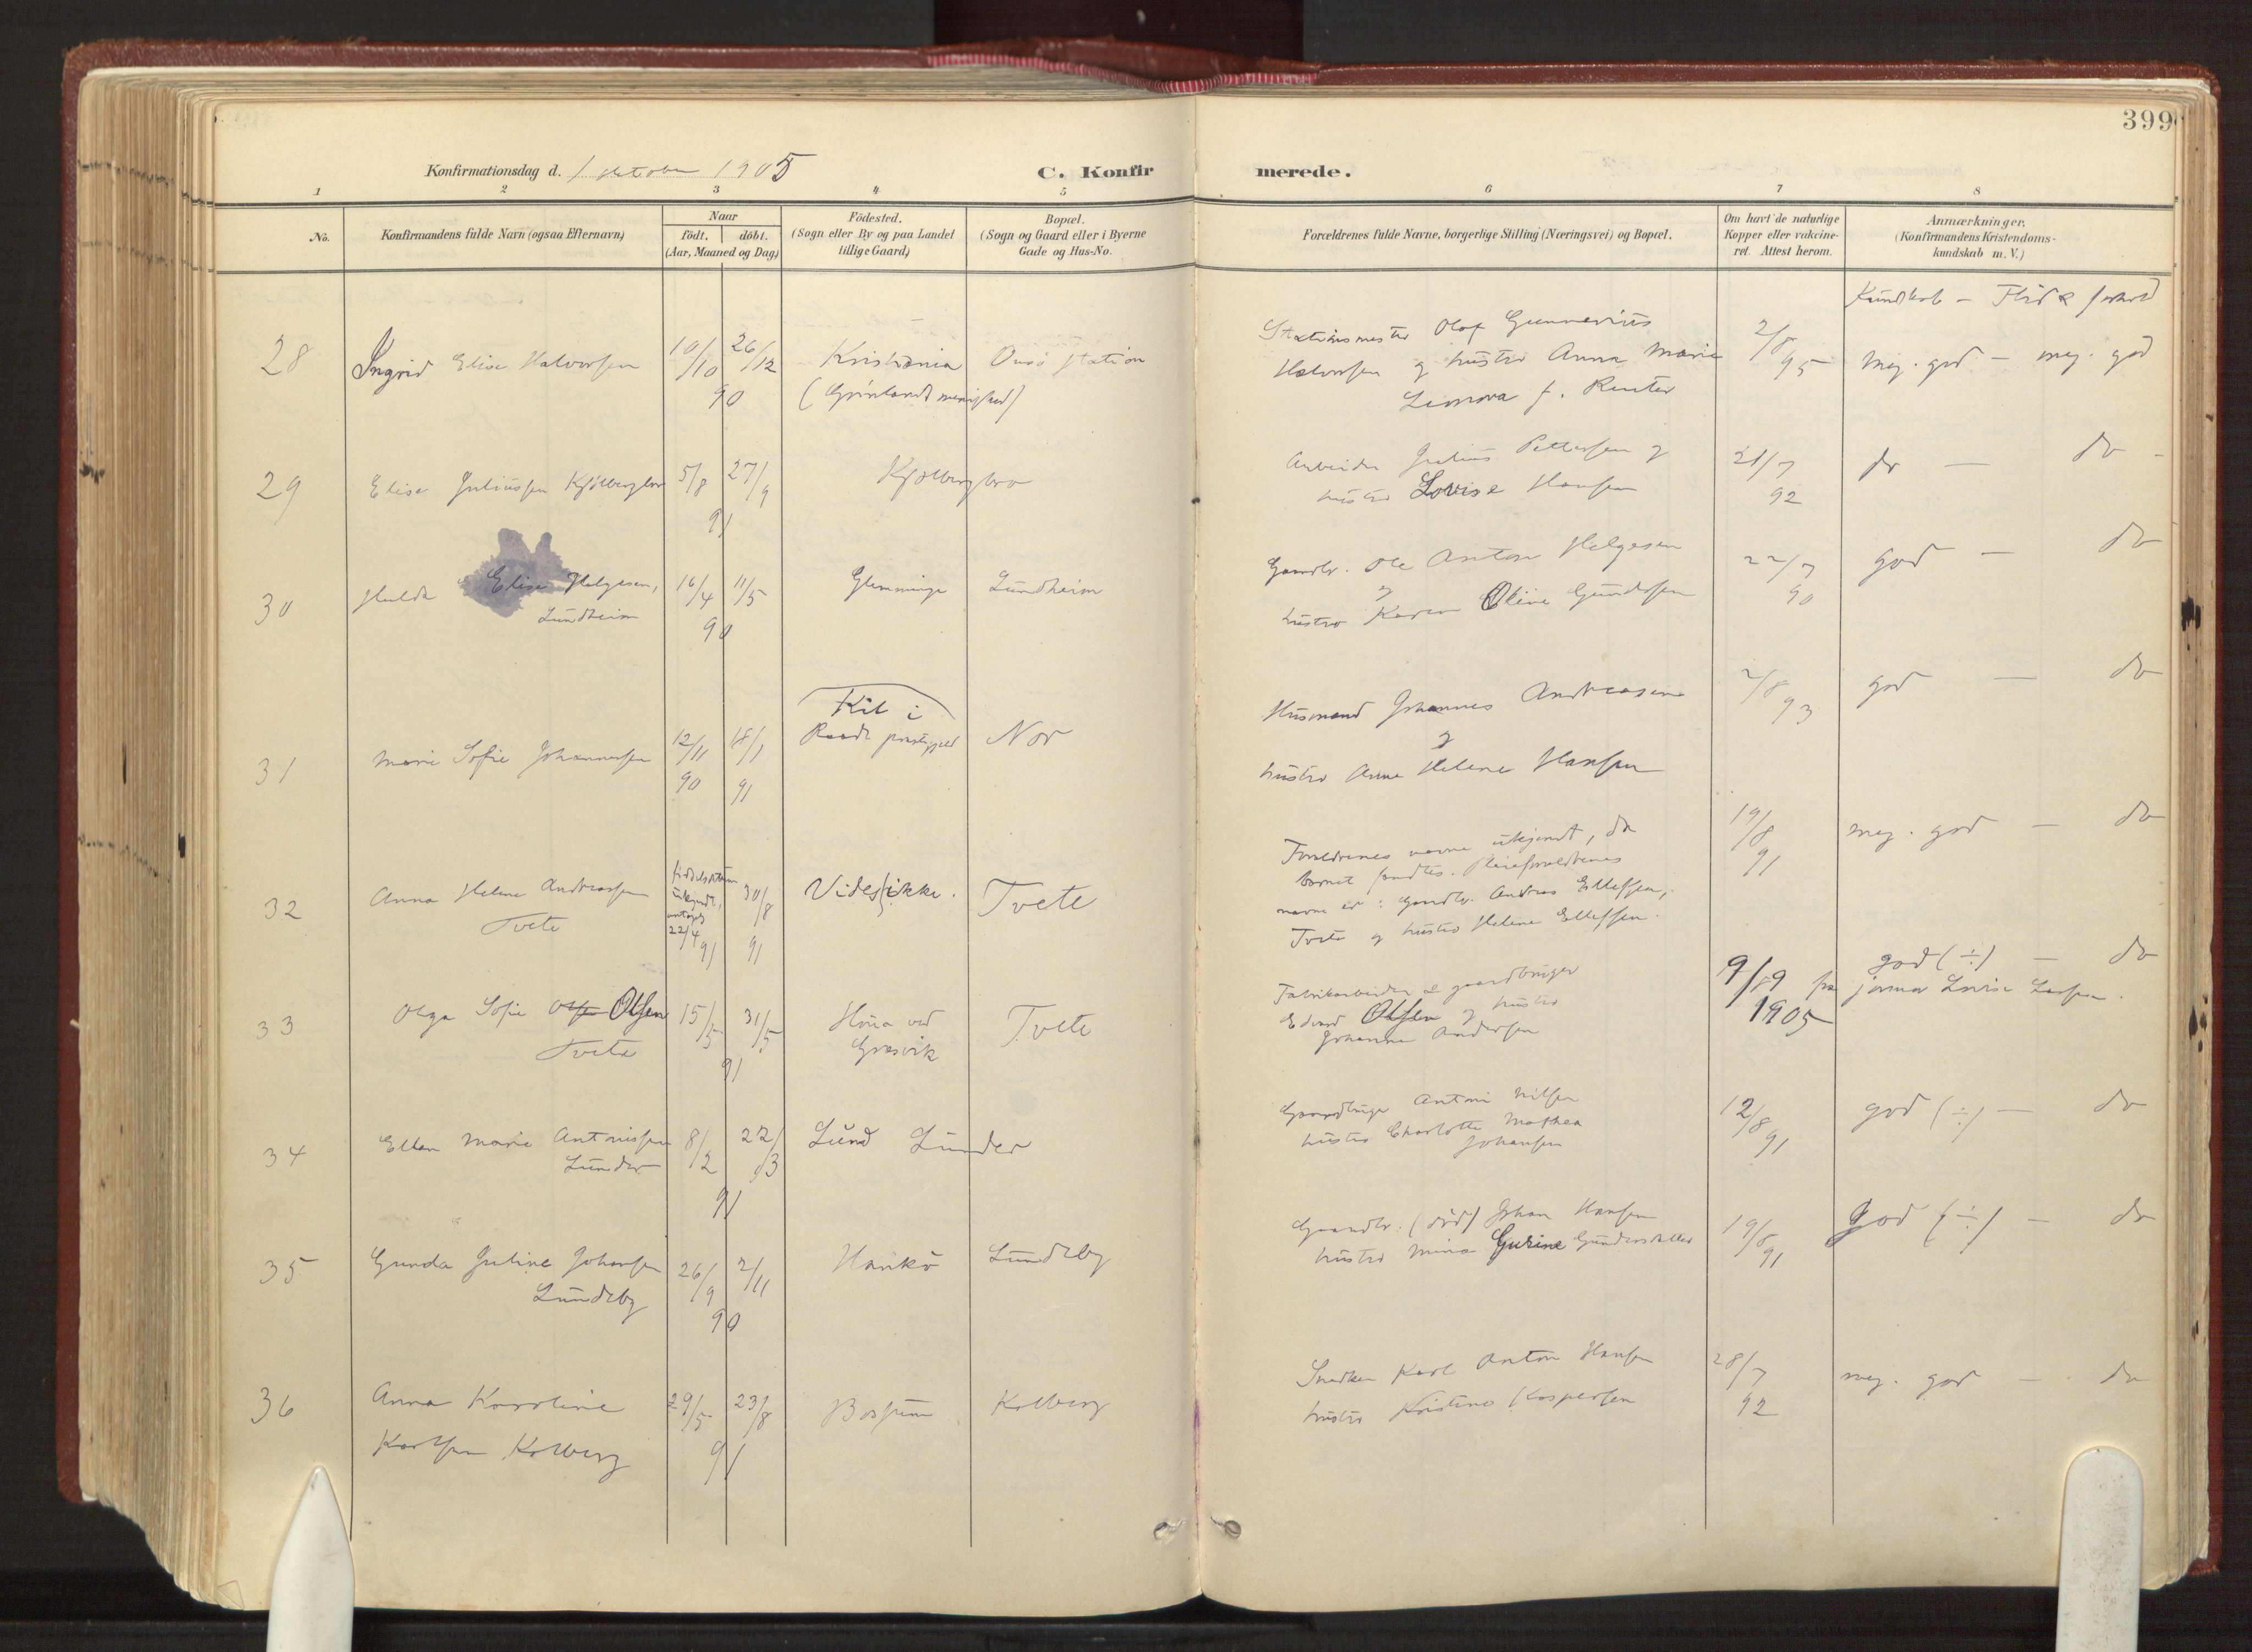 399
Konfirmationsdag d. 1 oktober 1905
C. Konfir
merede.
1 2 3 4 5 6 7 8
No.
Konfirmandens fulde Navn (ogsaa Efternavn)
Naar
födt. döbt.
(Aar, Maaned og Dag)
Födested.
(Sogn eller By og paa Landet
tillige Gaard)
Bopæl.
(Sogn og Gaard eller i Byerne
Gade og Hus-No.
Forældrenes fulde Navne, borgerlige Stilling (Næringsvei) og Bopæl.
Om havt de naturlige
Kopper eller vakcine-
ret. Attest herom.
Anmærkninger.
(Konfirmandens Kristendoms-
kundskab m. V.)
Kundskab - Flid & forhold
28 Ingrid Elise Halvorsen 10/10 26/12 90
Kristiania Onsö station
(Grönlands menighed)
Stationsmester Olaf Gunnerius
Halvorsen og hustro Anna Marie
Leonora f. Reuter
2/8 95
meg. god - meg. god
29 Elise Juliussen Kjölbergbro 5/8 27/9 91
Kjölbergbro
Arbeider Julius Pettersen og
hustro Lovise Hansen
21/7 92
do - do -
30 Hulda Elise Helgesen,
Lundheim
16/4 11/5 90
Glemminge Lundheim
Gaardbr. Ole Anton Helgesen
og
hustro Karen Oline Gundersen
22/7 90
god - do
31 Marie Sofie Johannessen 12/11 90 18/1 91
Kil i
Raade prestegjeld
Nor
Husmand Johannes Andreasen
og
hustro Anne Helene Hansen
2/8 93
god - do
32 Anna Helene Andreassen
Tvete
födselsdatum
ukjendt,
antages
22/4 91
30/8 91
Vides ikke.
Tvete
Forældrenes navne ukjendt, da
barnet fandtes. Pleieforældrenes
navne er: Gaardbr. Andreas Ellefsen,
Tvete og hustro Helene Ellefsen.
19/8 91
meg. god - do
33 Olga Sofie Olsen Olsen
Tvete
15/5 31/5 91
Höna ved
Gresvik
Tvete
Fabrikarbeider & gaardbruger
Edvard Olsen og hustro
Johanne Andersen
9/9 1905
god (÷) - do
fra jormor Lovise Larsen.
34 Ellen Marie Antonissen
Lunder
8/2 22/3 91
Lund Lunder
Gaardbruger Antoni Nilsen
hustro Charlotte Mathea
Johansen
12/8 91
god (÷) - do
35 Gunda Juline Johansen
Lundeby
26/9 2/11 90
Hankö Lundeby
Gaardbr. (död) Johan Hansen
hustro Mina Gurine Gundersdatter
19/8 91
god (÷) - do
36 Anna Karoline
Karlsen Kolberg
29/5 23/8 91
Kolberg
Snedker Karl Anton Hansen
hustro Kristine Kaspersen
28/7 92
meg. god - do